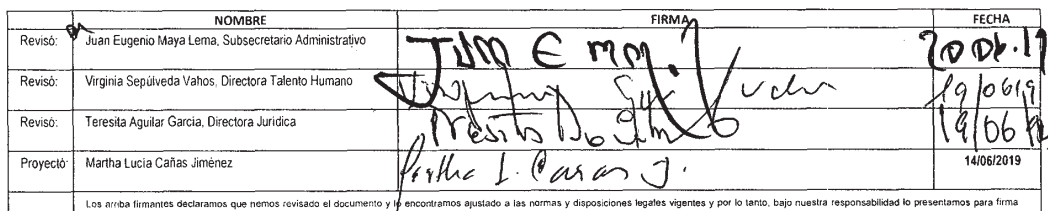 NOMBRE FIRMA FECHA
Revisó: Juan Eugenio Maya Lema, Subsecretario Administrativo
Revisó: Virginia Sepúlveda Vahos, Directora Talento Humano 19/06/19
Revisó: Teresita Aguilar García, Directora Jurídica Teresita Aguilar 19/06/
Proyectó: Martha Lucía Cañas Jiménez Martha L. Cañas J. 14/06/2019
Los arriba firmantes declaramos que hemos revisado el documento y lo encontramos ajustado a las normas y disposiciones legales vigentes y por lo tanto, bajo nuestra responsabilidad lo presentamos para firma